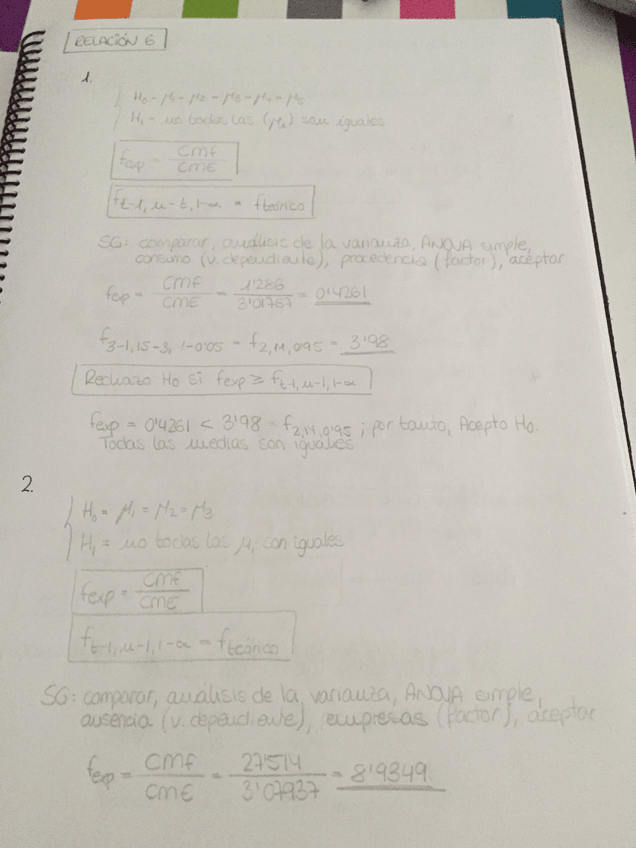 RELACIÓN 6
1.
H₀ = μ₁ = μ₂ = μ₃ = μ₄ = μ₅
H₁ = no todas las (μᵢ) son iguales
fexp = CMF / CME
ft-1, n-t, 1-α = fteórico
SG: comparar, análisis de la varianza, ANOVA simple,
consumo (v. dependiente), procedencia (factor), aceptar
fexp = CMF / CME = 1'286 / 3'01767 = 0'4261
f3-1, 15-3, 1-0'05 = f2, 11, 0'95 = 3'98
Rechazo H₀ si fexp ≥ ft-1, n-1, 1-α
fexp = 0'4261 < 3'98 = f2, 11, 0'95 ; por tanto, Acepto H₀.
Todas las medias son iguales
2.
H₀ = μ₁ = μ₂ = μ₃
H₁ = no todas las μᵢ son iguales
fexp = CMF / CME
ft-1, n-1, 1-α = fteórico
SG: comparar, análisis de la varianza, ANOVA simple,
ausencia (v. dependiente), empresas (factor), aceptar
fexp = CMF / CME = 27'514 / 3'07937 = 8'9349